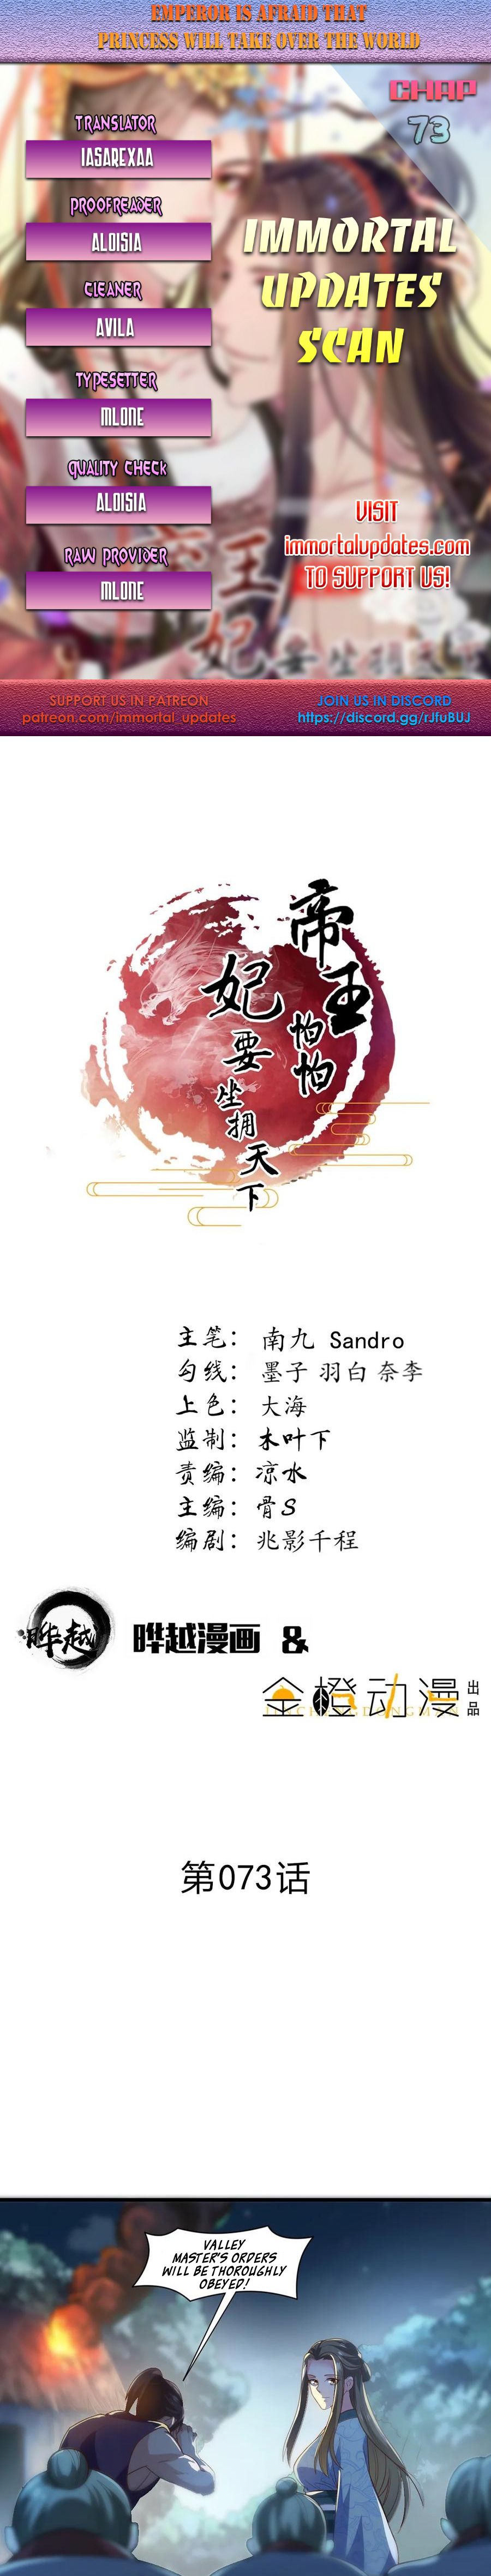 EMPEROR IS AFRAID THAT
PRINCESS WILL TAKE OVER THE WORLD
CHAP
73
TRANSLATOR
IASAREXAA
PROOFREADER
ALOISIA
CLEANER
AVILA
TYPESETTER
MLONE
QUALITY CHECK
ALOISIA
RAW PROVIDER
MLONE
IMMORTAL
UPDATES
SCAN
VISIT
immortalupdates.com
TO SUPPORT US!
SUPPORT US IN PATREON
patreon.com/immortal_updates
JOIN US IN DISCORD
https://discord.gg/rJfuBUJ
帝王怕怕
妃要坐拥天下
主笔：南九 Sandro
勾线：墨子 羽白 奈李
上色：大海
监制：木叶下
责编：凉水
主编：骨S
编剧：兆影千程
晔越
晔越漫画 &
金橙动漫 出品
JINCHENGDONGMAN
第073话
VALLEY
MASTER'S ORDERS
WILL BE THOROUGHLY
OBEYED!